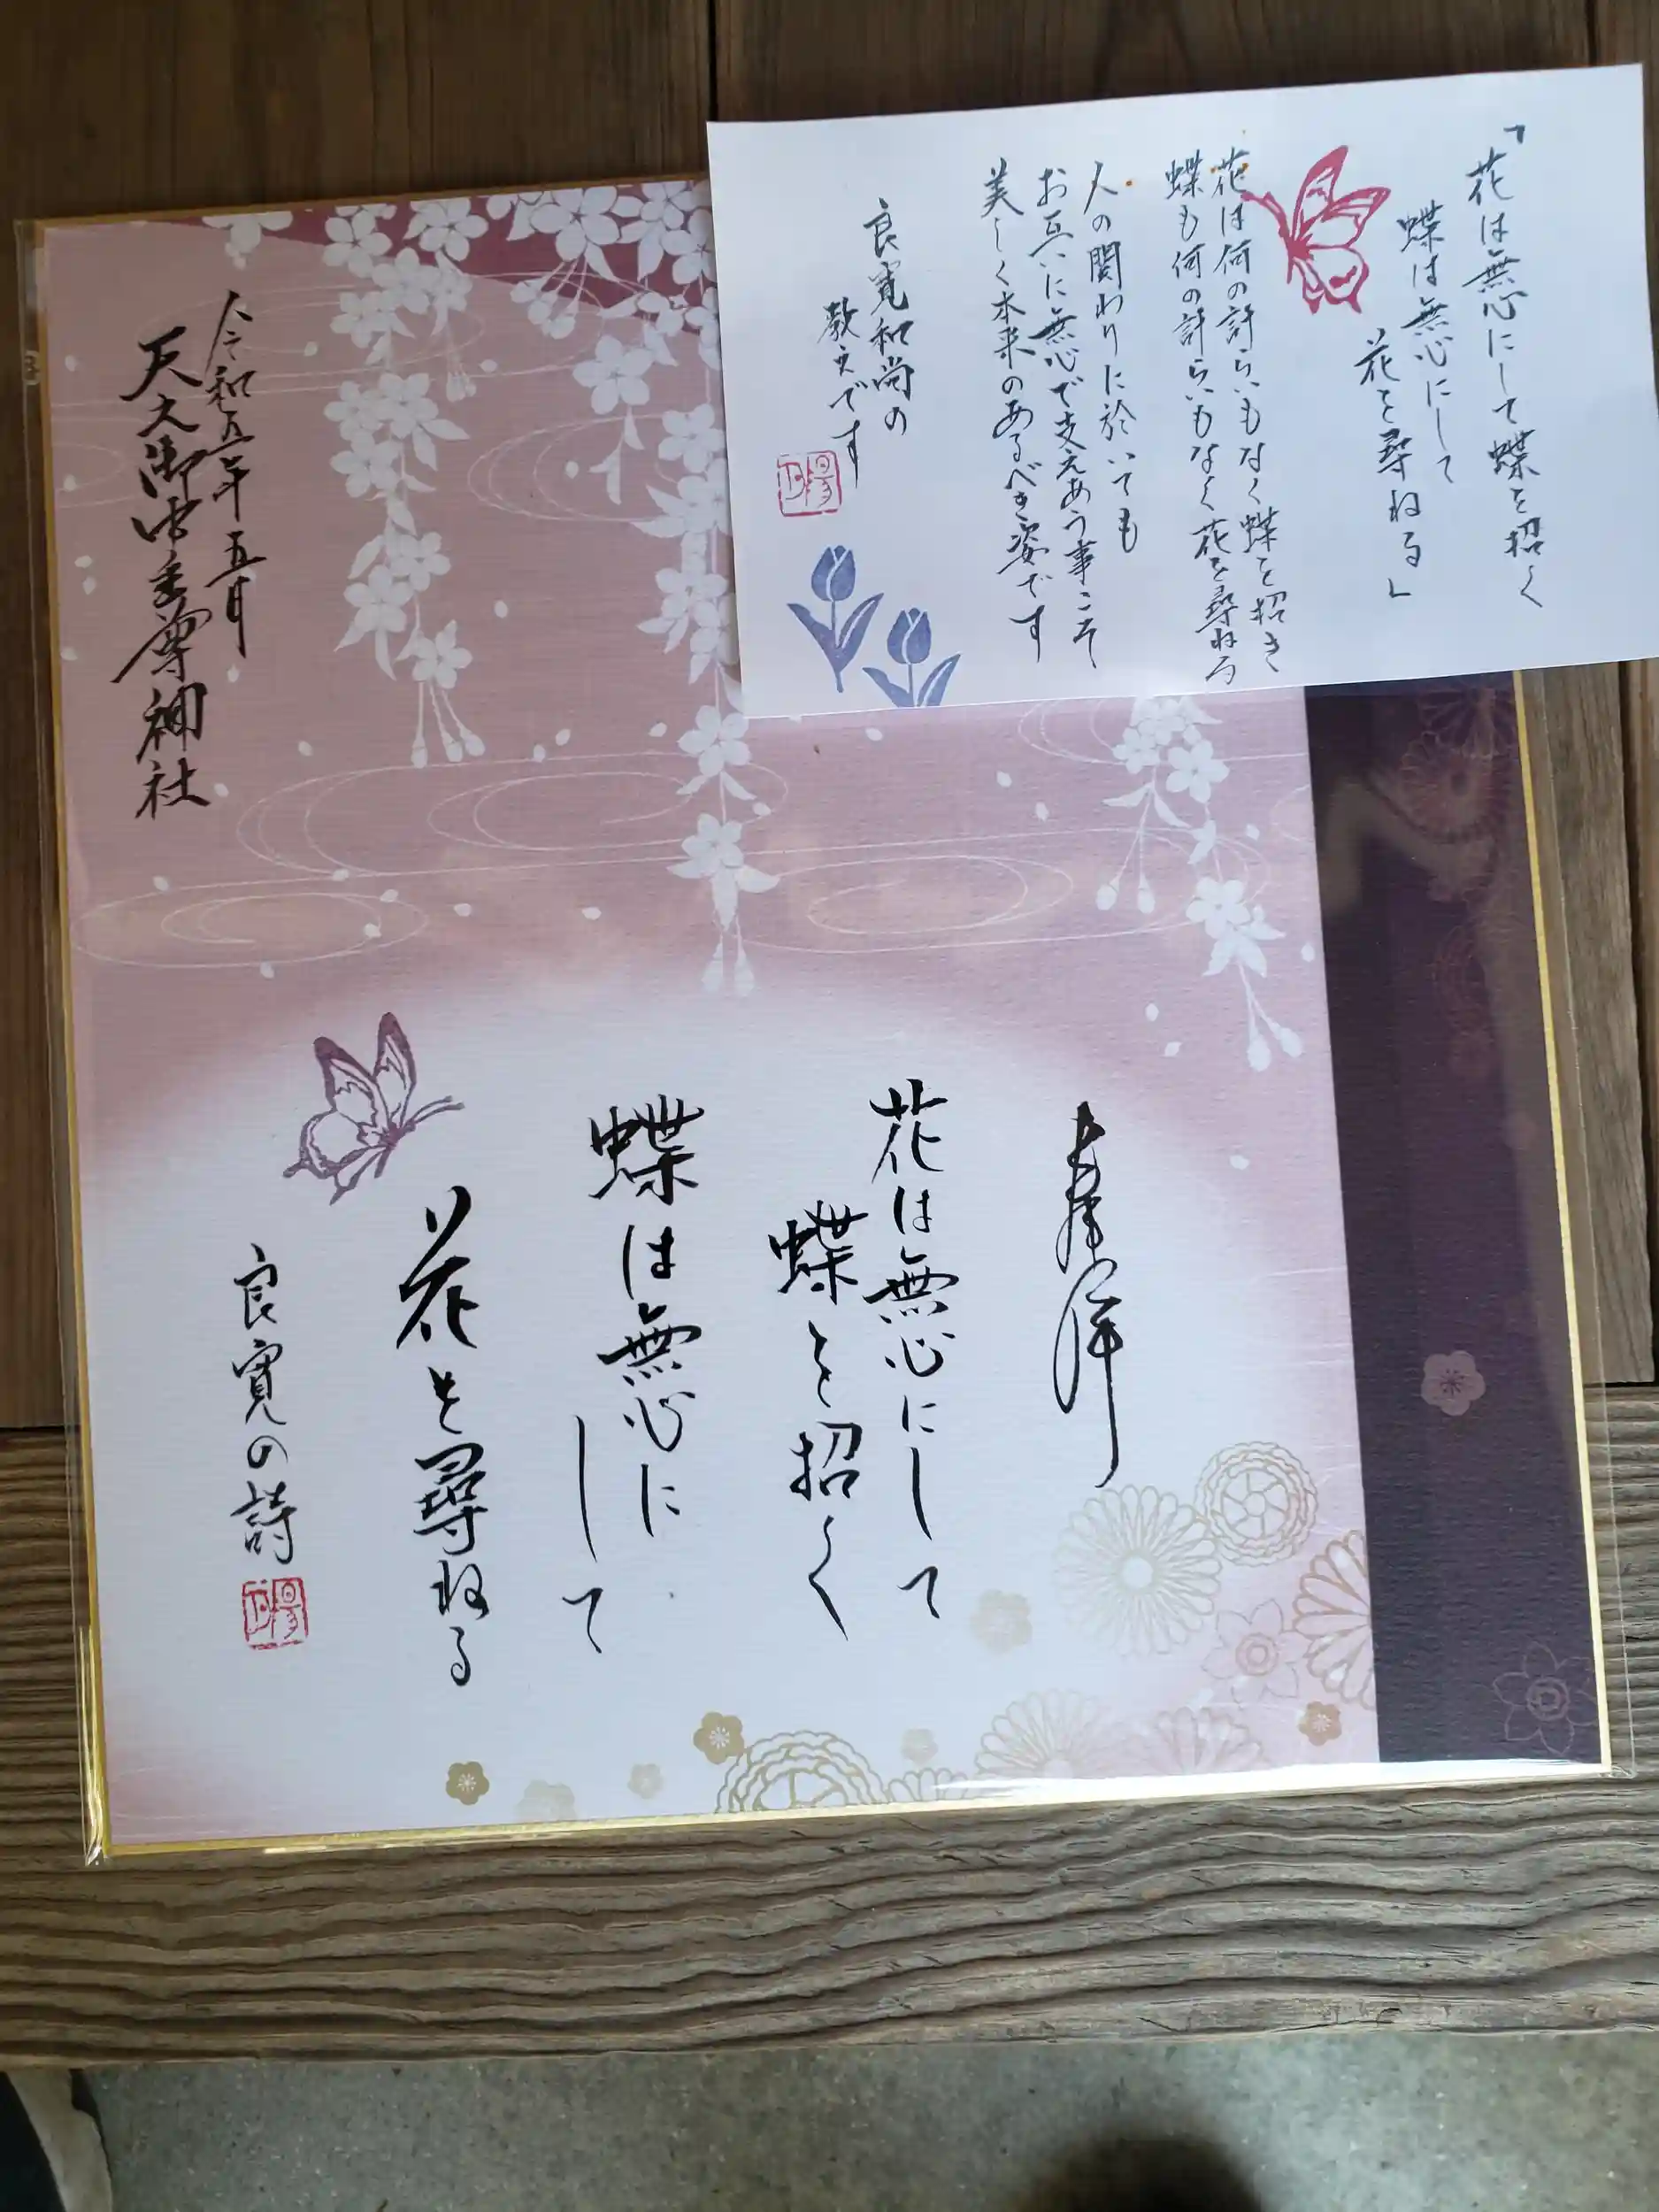 「花は無心にして蝶を招く
蝶は無心にして
花を尋ねる」
花は何の計らいもなく蝶を招き
蝶も何の計らいもなく花を尋ねる
人の関わりに於いても
お互いに無心で支えあう事こそ
美しく本来のあるべき姿です
良寛和尚の
教えです
奉拝
花は無心にして
蝶を招く
蝶は無心に
して
花を尋ねる
良寛の詩
令和五年五月
天之御中主尊神社